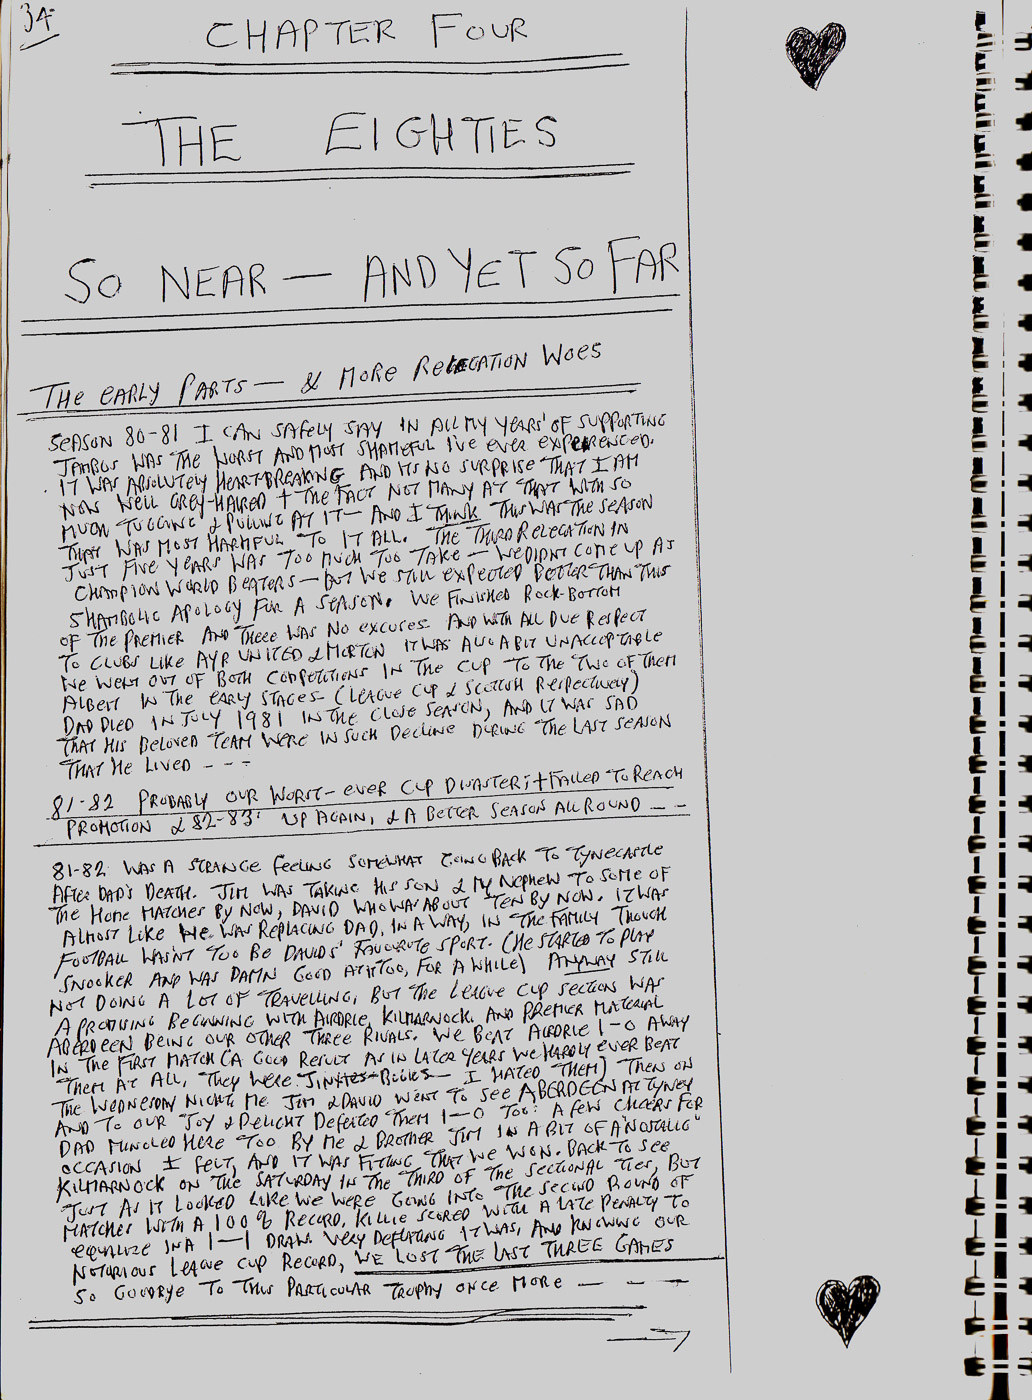 34
CHAPTER FOUR
THE EIGHTIES
SO NEAR — AND YET SO FAR
THE EARLY PARTS — & MORE RELEGATION WOES
SEASON 80-81 I CAN SAFELY SAY IN ALL MY YEARS' OF SUPPORTING
JAMBOS WAS THE WORST AND MOST SHAMEFUL I'VE EVER EXPERIENCED.
IT WAS ABSOLUTELY HEART-BREAKING AND ITS NO SURPRISE THAT I AM
NOW WELL GREY-HAIRED + THE FACT NOT MANY AT THAT WITH SO
MUCH TUGGING & PULLING AT IT — AND I THINK THIS WAS THE SEASON
THAT WAS MOST HARMFUL TO IT ALL. THE THIRD RELEGATION IN
JUST FIVE YEARS WAS TOO MUCH TOO TAKE — WE DIDNT COME UP AS
CHAMPION WORLD BEATERS — BUT WE STILL EXPECTED BETTER THAN THIS
SHAMBOLIC APOLOGY FOR A SEASON. WE FINISHED ROCK-BOTTOM
OF THE PREMIER AND THERE WAS NO EXCUSES AND WITH ALL DUE RESPECT
TO CLUBS LIKE AYR UNITED & MORTON IT WAS ALSO A BIT UNACCEPTABLE
WE WENT OUT OF BOTH COMPETITIONS IN THE CUP TO THE TWO OF THEM
ALBEIT IN THE EARLY STAGES — (LEAGUE CUP & SCOTTISH RESPECTIVELY)
DAD DIED IN JULY 1981 IN THE CLOSE SEASON, AND IT WAS SAD
THAT HIS BELOVED TEAM WERE IN SUCH DECLINE DURING THE LAST SEASON
THAT HE LIVED - - -
81-82 PROBABLY OUR WORST-EVER CUP DISASTER; + FAILED TO REACH
PROMOTION & 82-83: UP AGAIN, & A BETTER SEASON ALL ROUND - -
81-82: WAS A STRANGE FEELING SOMEWHAT GOING BACK TO TYNECASTLE
AFTER DAD'S DEATH. JIM WAS TAKING HIS SON & MY NEPHEW TO SOME OF
THE HOME MATCHES BY NOW, DAVID WHO WAS ABOUT TEN BY NOW. IT WAS
ALMOST LIKE HE WAS REPLACING DAD, IN A WAY, IN THE FAMILY THOUGH
FOOTBALL WASN'T TOO BE DAVIDS' FAVOURITE SPORT. (HE STARTED TO PLAY
SNOOKER AND WAS DAMN GOOD AT IT TOO, FOR A WHILE) ANYWAY STILL
NOT DOING A LOT OF TRAVELLING, BUT THE LEAGUE CUP SECTION WAS
A PROMISING BEGINNING WITH AIRDRIE, KILMARNOCK AND PREMIER MATERIAL
ABERDEEN BEING OUR OTHER THREE RIVALS. WE BEAT AIRDRIE 1-0 AWAY
IN THE FIRST MATCH (A GOOD RESULT AS IN LATER YEARS WE HARDLY EVER BEAT
THEM AT ALL, THEY WERE JINXIES-BOGIES — I HATED THEM) THEN ON
THE WEDNESDAY NIGHT, ME JIM & DAVID WENT TO SEE ABERDEEN AT TYNEY
AND TO OUR JOY & DELIGHT DEFEATED THEM 1-0 TOO: A FEW CHEERS FOR
DAD MINGLED HERE TOO BY ME & BROTHER JIM IN A BIT OF A 'NOSTALGIC'
OCCASION I FELT, AND IT WAS FITTING THAT WE WON. BACK TO SEE
KILMARNOCK ON THE SATURDAY IN THE THIRD OF THE SECTIONAL TIES, BUT
JUST AS IT LOOKED LIKE WE WERE GOING INTO THE SECOND ROUND OF
MATCHES WITH A 100% RECORD, KILLIE SCORED WITH A LATE PENALTY TO
EQUALIZE IN A 1-1 DRAW. VERY DEFLATING IT WAS, AND KNOWING OUR
NOTORIOUS LEAGUE CUP RECORD, WE LOST THE LAST THREE GAMES
SO GOODBYE TO THIS PARTICULAR TROPHY ONCE MORE — - —